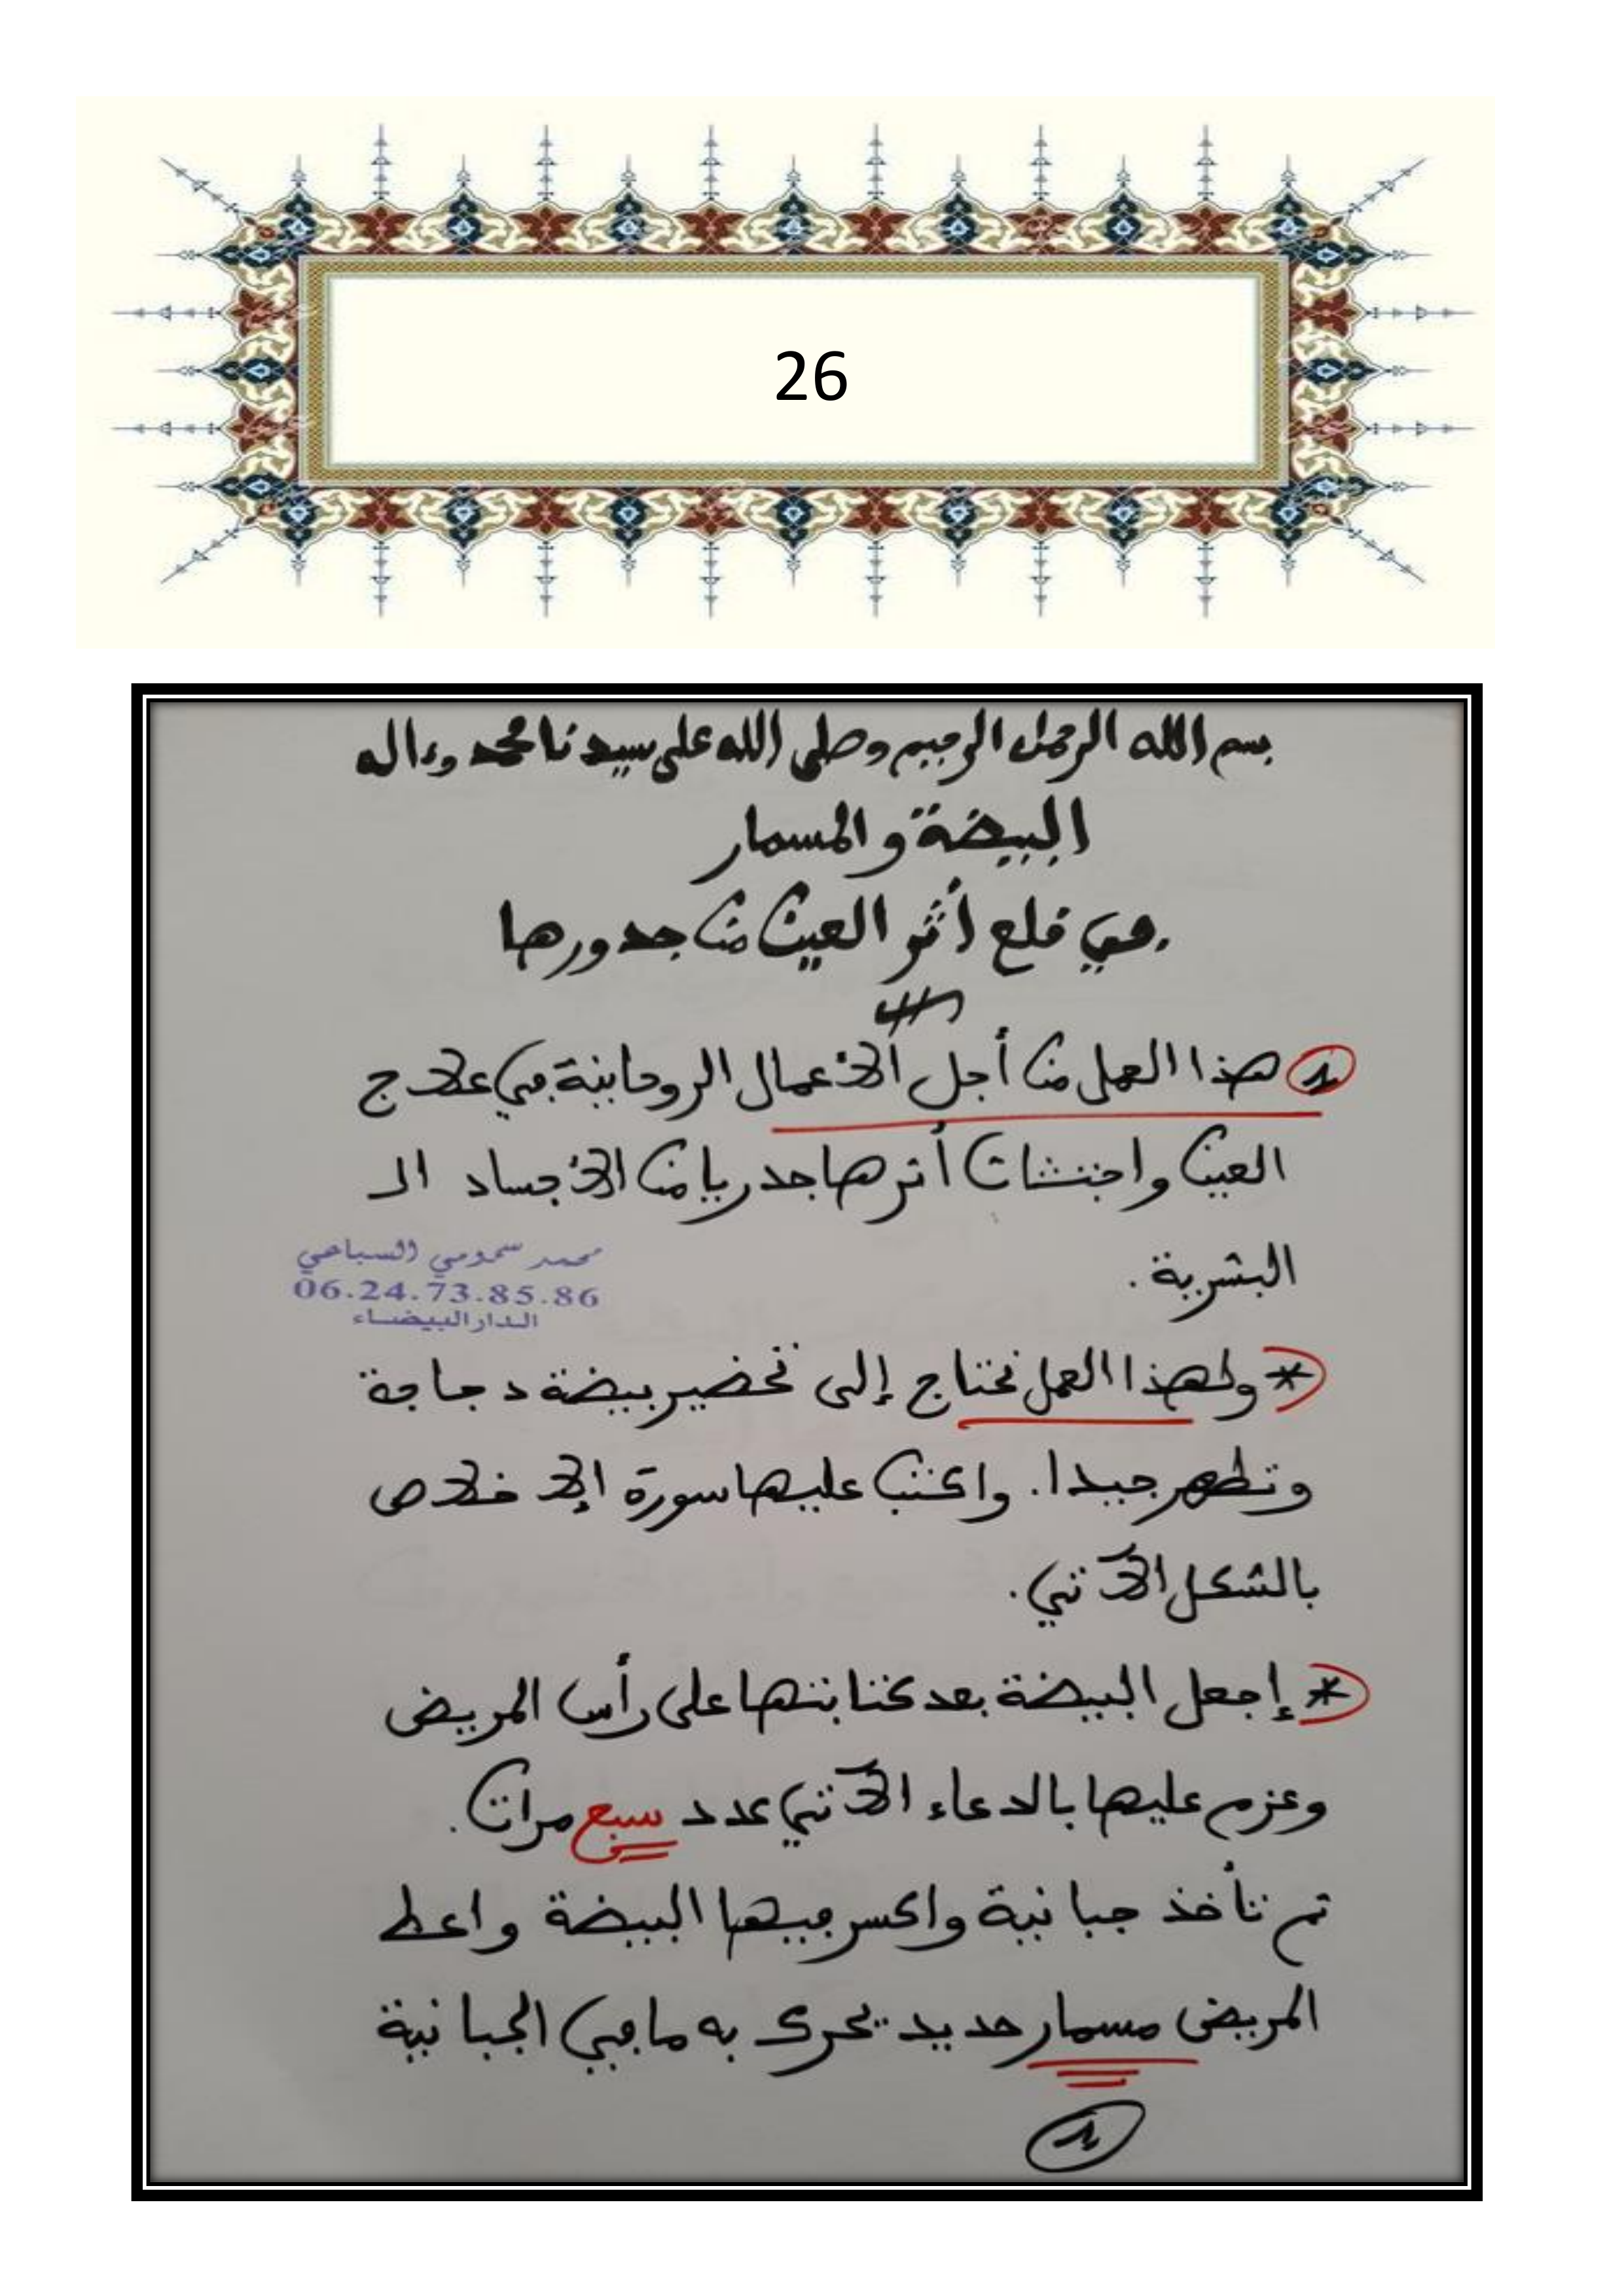 26
بسم الله الرحمان الرحيم وصلى الله على سيدنا محمد وءاله
البيضة والمسمار
في قلع أثر العين من جدورها
1 هذا العمل من أجل الأعمال الروحانية في علاج
العين واجتثات أترها جدريا من الأجساد الـ
البشرية.
محمد سمومي السباعي
06.24.73.85.86
الدار البيضاء
* ولهذا العمل نحتاج إلى تحضير بيضة دجاجة
وتطهر جيدا. واكتب عليها سورة الإخلاص
بالشكل الآتي.
* إجعل البيضة بعد كتابتها على رأس المريض
وعزم عليها بالدعاء الآتي عدد سبع مرات.
تم تأخذ جبانية واكسر فيها البيضة واعط
المريض مسمار حديد يحرك به ما في الجبانية
1